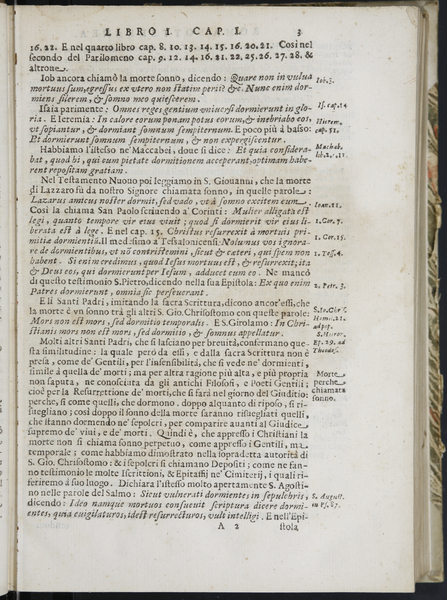 LIBRO I. CAP. I. 3
16. 22. E nel quarto libro cap. 8. 10. 13. 14. 15. 16. 20. 21. Cosi nel
secondo del Parilomeno cap. 9. 12. 14. 16. 21. 22. 25. 26. 27. 28. &
altrone.
Iob ancora chiamò la morte sonno, dicendo: Quare non in vulua
mortuus sum, egressus ex vtero non statim perij? &c. Nunc enim dor-
miens silerem, & somno meo quiescerem.
Iob. 3.
Isaia parimente: Omnes reges gentium vniuersi dormierunt in glo-
ria. E Ieremia: In calore eorum ponam potus eorum, & inebriabo eos,
vt sopiantur, & dormiant somnum sempiternum. E poco più à basso:
Et dormierunt somnum sempiternum, & non expergiscentur.
Is. cap. 14
Hierem.
cap. 51.
Habbiamo l'istesso ne' Maccabei, doue si dice: Et quia considera-
bat, quod hi, qui cum pietate dormitionem acceperant, optimam habe-
rent repositam gratiam.
Machab.
lib. 2. 12.
Nel Testamento Nuouo poi leggiamo in S. Giouanni, che la morte
di Lazzaro fù da nostro Signore chiamata sonno, in quelle parole:
Lazarus amicus noster dormit, sed vado, vt à somno excitem eum.
Così la chiama San Paolo scriuendo a' Corinti: Mulier alligata est
legi, quanto tempore vir eius viuit; quod si dormierit vir eius li-
berata est à lege. E nel cap. 15. Christus resurrexit à mortuis pri-
mitiæ dormientiũ. Il medesimo a' Tessalonicensi: Nolumus vos ignora-
re de dormientibus, vt nõ contristemini, sicut & cæteri, qui spem non
habent. Si enim credimus, quod Iesus mortuus est, & resurrexit; ita
& Deus eos, qui dormierunt per Iesum, adducet cum eo. Ne mancò
di questo testimonio S. Pietro, dicendo nella sua Epistola: Ex quo enim
Patres dormierunt, omnia sic perseuerant.
Ioan. 11.
1. Cor. 7.
1. Cor. 15.
1. Tess. 4.
2. Petr. 3.
E li Santi Padri, imitando la sacra Scrittura, dicono ancor'essi, che
la morte è vn sonno trà gli altri S. Gio. Chrisostomo con queste parole:
Mors non est mors, sed dormitio temporalis. E S. Girolamo: In Chri-
stianis mors non est mors, sed dormitio, & somnus appellatur.
Ep. 29. ad
Molti altri Santi Padri, che si lasciano per breuità, confermano que-
sta similitudine: la quale però da essi, e dalla sacra Scrittura non è
presa, come de' Gentili, per l'insensibilità, che si vede ne' dormienti,
simile à quella de' morti; ma per altra ragione più alta, e più propria
non saputa, ne conosciuta da gli antichi Filosofi, e Poeti Gentili;
cioè per la Resurrettione de' morti, che si farà nel giorno del Giuditio;
perche, si come quelli, che dormono, doppo alquanto di riposo, si ri-
suegliano; così doppo il sonno della morte saranno risuegliati quelli,
che stanno dormendo ne' sepolcri, per comparire auanti al Giudice
supremo de' viui, e de' morti. Quindi è, che appresso i Christiani la
morte non si chiama sonno perpetuo, come appresso i Gentili, ma
temporale; come habbiamo dimostrato nella sopradetta autorità di
S. Gio. Chrisostomo: & i sepolcri si chiamano Depositi; come ne fan-
no testimonio le molte Iscrittioni, & Epitaffij ne' Cimiterij, i quali ri-
feriremo à suo luogo. Dichiara l'istesso molto apertamente S. Agosti-
no nelle parole del Salmo: Sicut vulnerati dormientes in sepulchris,
dicendo: Ideo namque mortuos consueuit scriptura dicere dormi-
entes, quia euigilaturos, idest resurrecturos, vult intelligi. E nell'Epi-
Morte
perche
chiamata
sonno.
S. August.
in Ps. 87.
A 2 stola